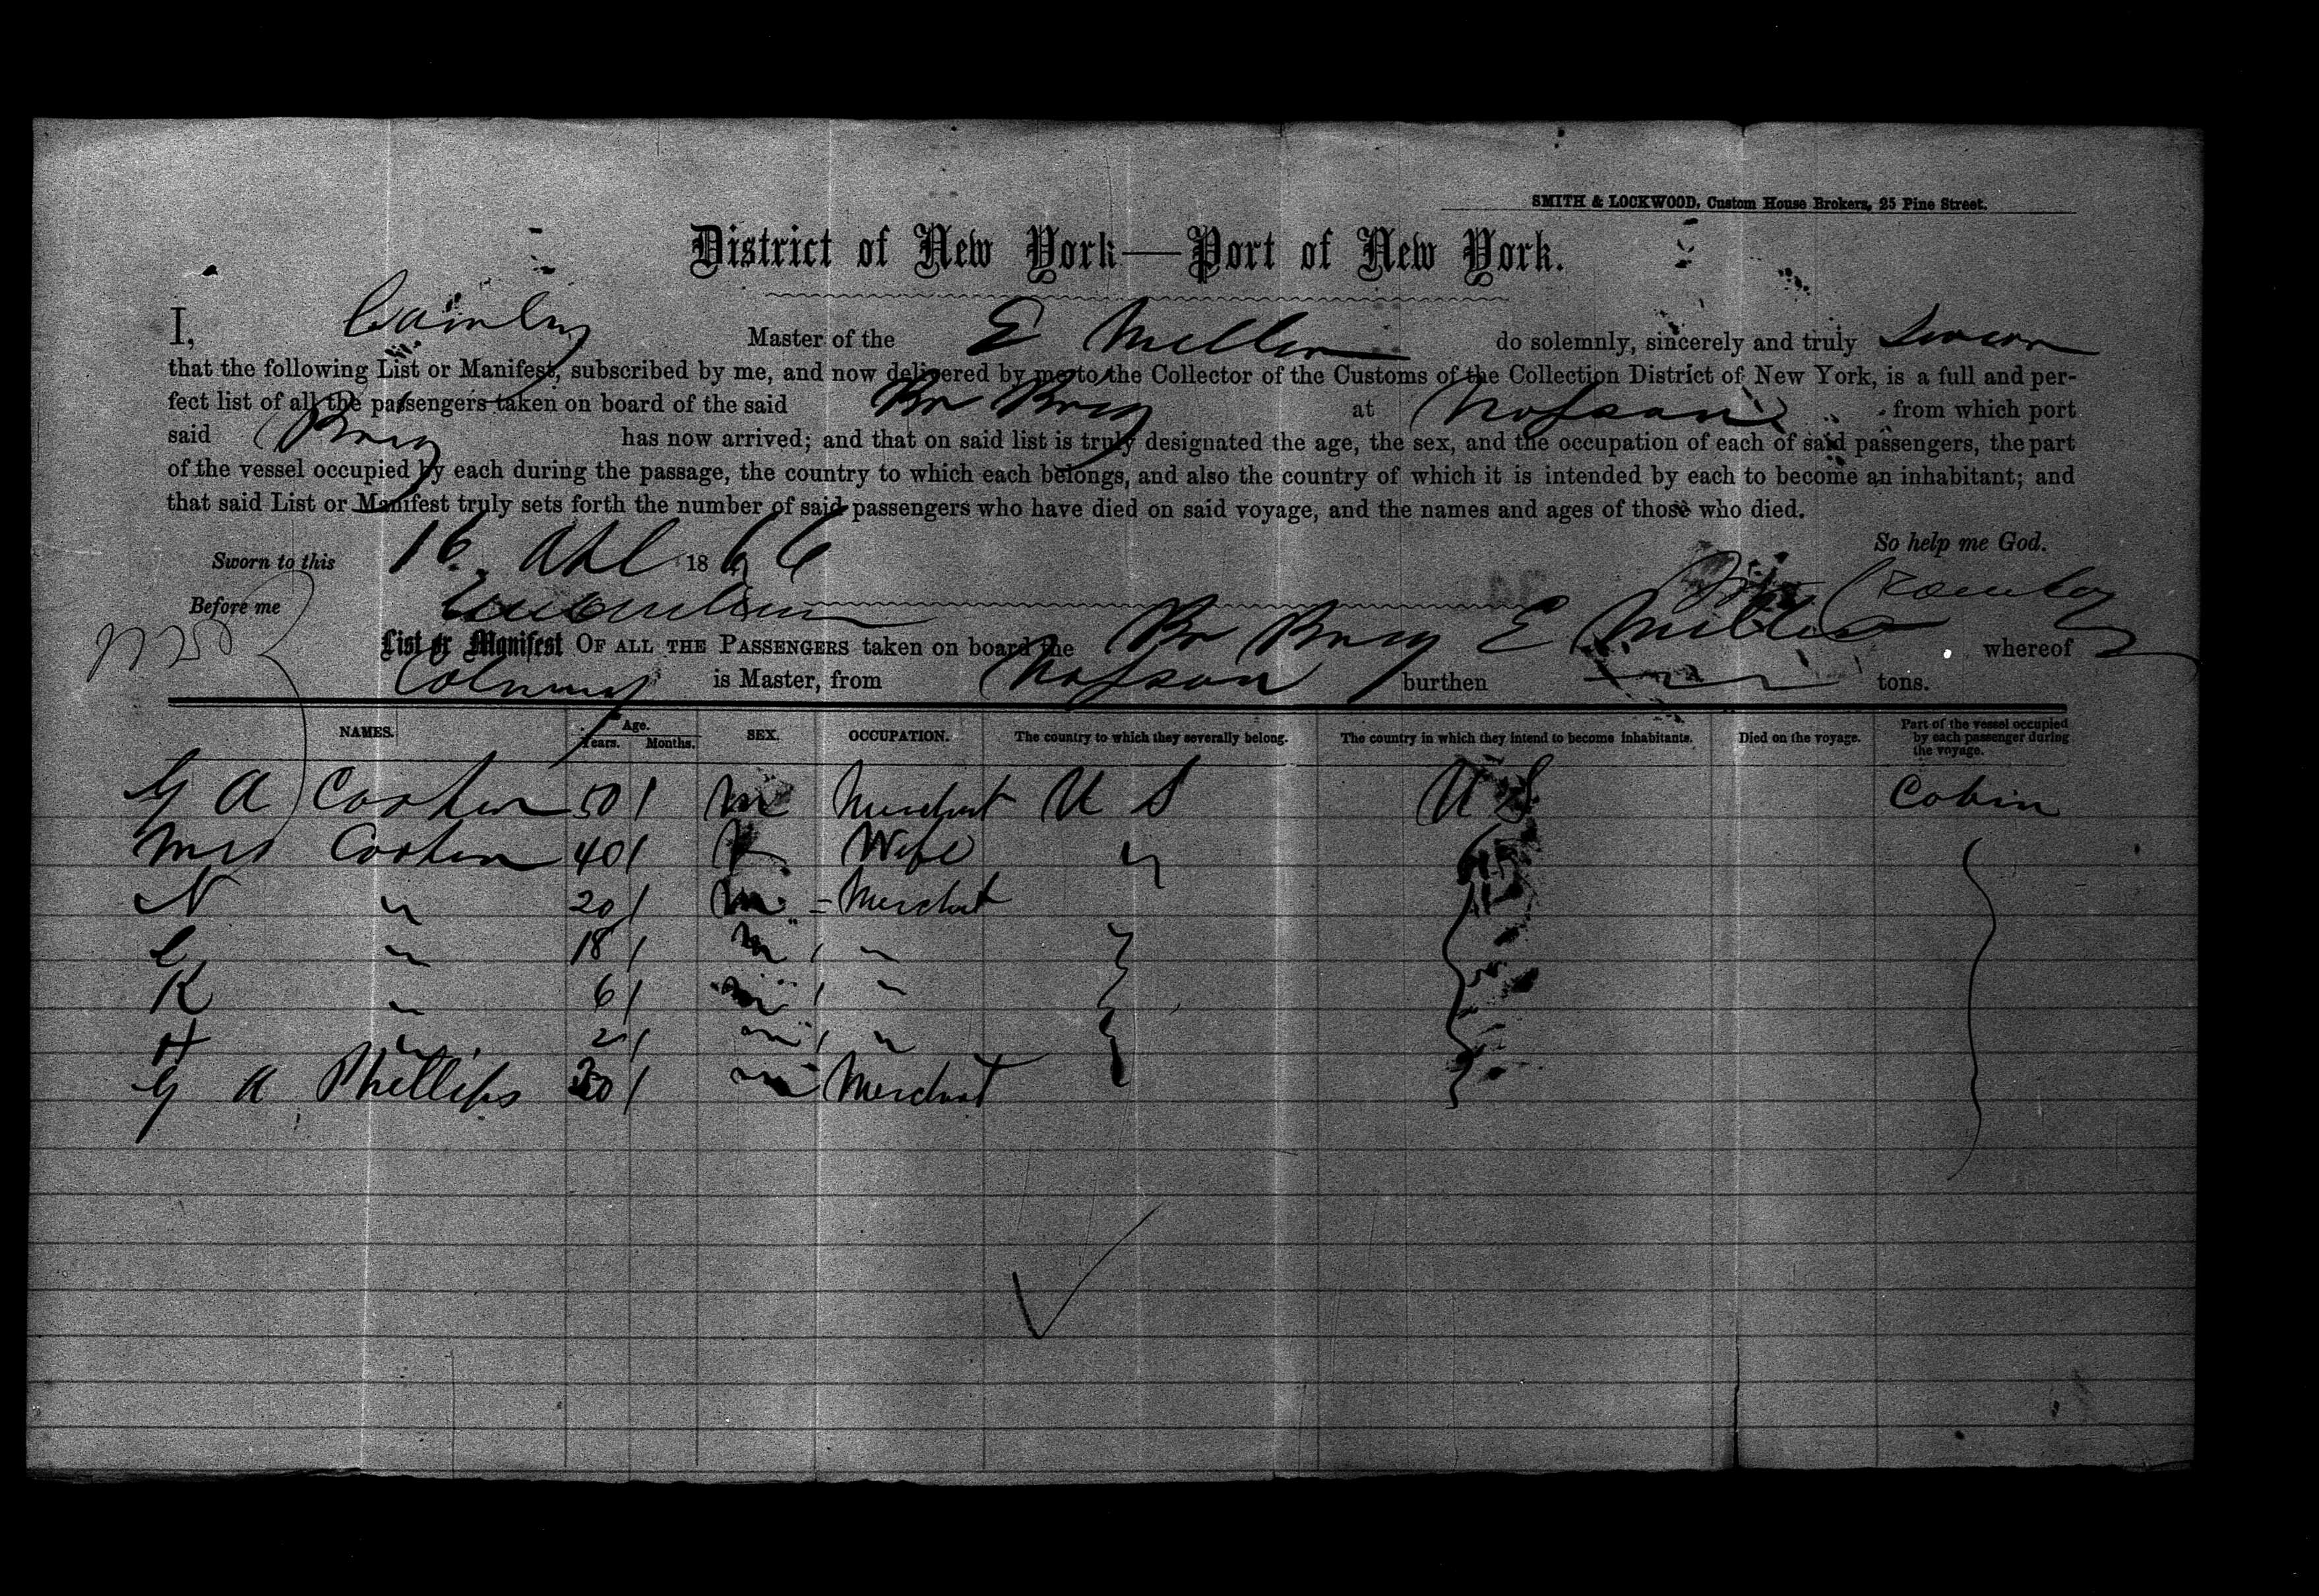 SMITH & LOCKWOOD, Custom House Brokers, 25 Pine Street.
District of New York—Port of New York.
I, Master of the E Miller do solemnly, sincerely and truly swear
that the following List or Manifest, subscribed by me, and now delivered by me to the Collector of the Customs of the Collection District of New York, is a full and per-
fect list of all the passengers taken on board of the said Br Brig at Nassau from which port
said Brig has now arrived; and that on said list is truly designated the age, the sex, and the occupation of each of said passengers, the part
of the vessel occupied by each during the passage, the country to which each belongs, and also the country of which it is intended by each to become an inhabitant; and
that said List or Manifest truly sets forth the number of said passengers who have died on said voyage, and the names and ages of those who died.
So help me God.
Sworn to this 16 Apl 1866
Before me
List or Manifest OF ALL THE PASSENGERS taken on board the Br Brig E Miller whereof
is Master, from Nassau burthen tons.
NAMES. Age. Years. Months. SEX. OCCUPATION. The country to which they severally belong. The country in which they intend to become inhabitants. Died on the voyage. Part of the vessel occupied by each passenger during the voyage.
G A 50 m Merchant U S U S Cabin
Mrs 40 Wife "
N " 20 m Merchant
" 18 m "
K " 6 m "
H " 2 m "
G A Phillips m Merchant